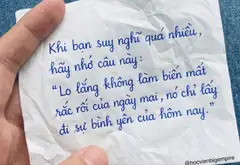 Khi bạn suy nghĩ quá nhiều,
hãy nhớ câu này:
"Lo lắng không làm biến mất
rắc rối của ngày mai, nó chỉ lấy
đi sự bình yên của hôm nay."
@hocvienbigempire